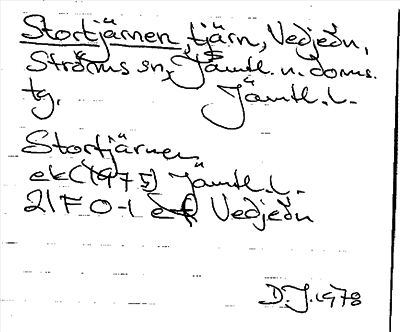 Stortjärnen, tjärn, Vedjeön,
Ströms sn, Jämtl. n. doms.
tg. Jämtl. l.
Stortjärnen
ek (1975) Jämtl. l.
21F 0-1 ef Vedjeön
D.J. 1978